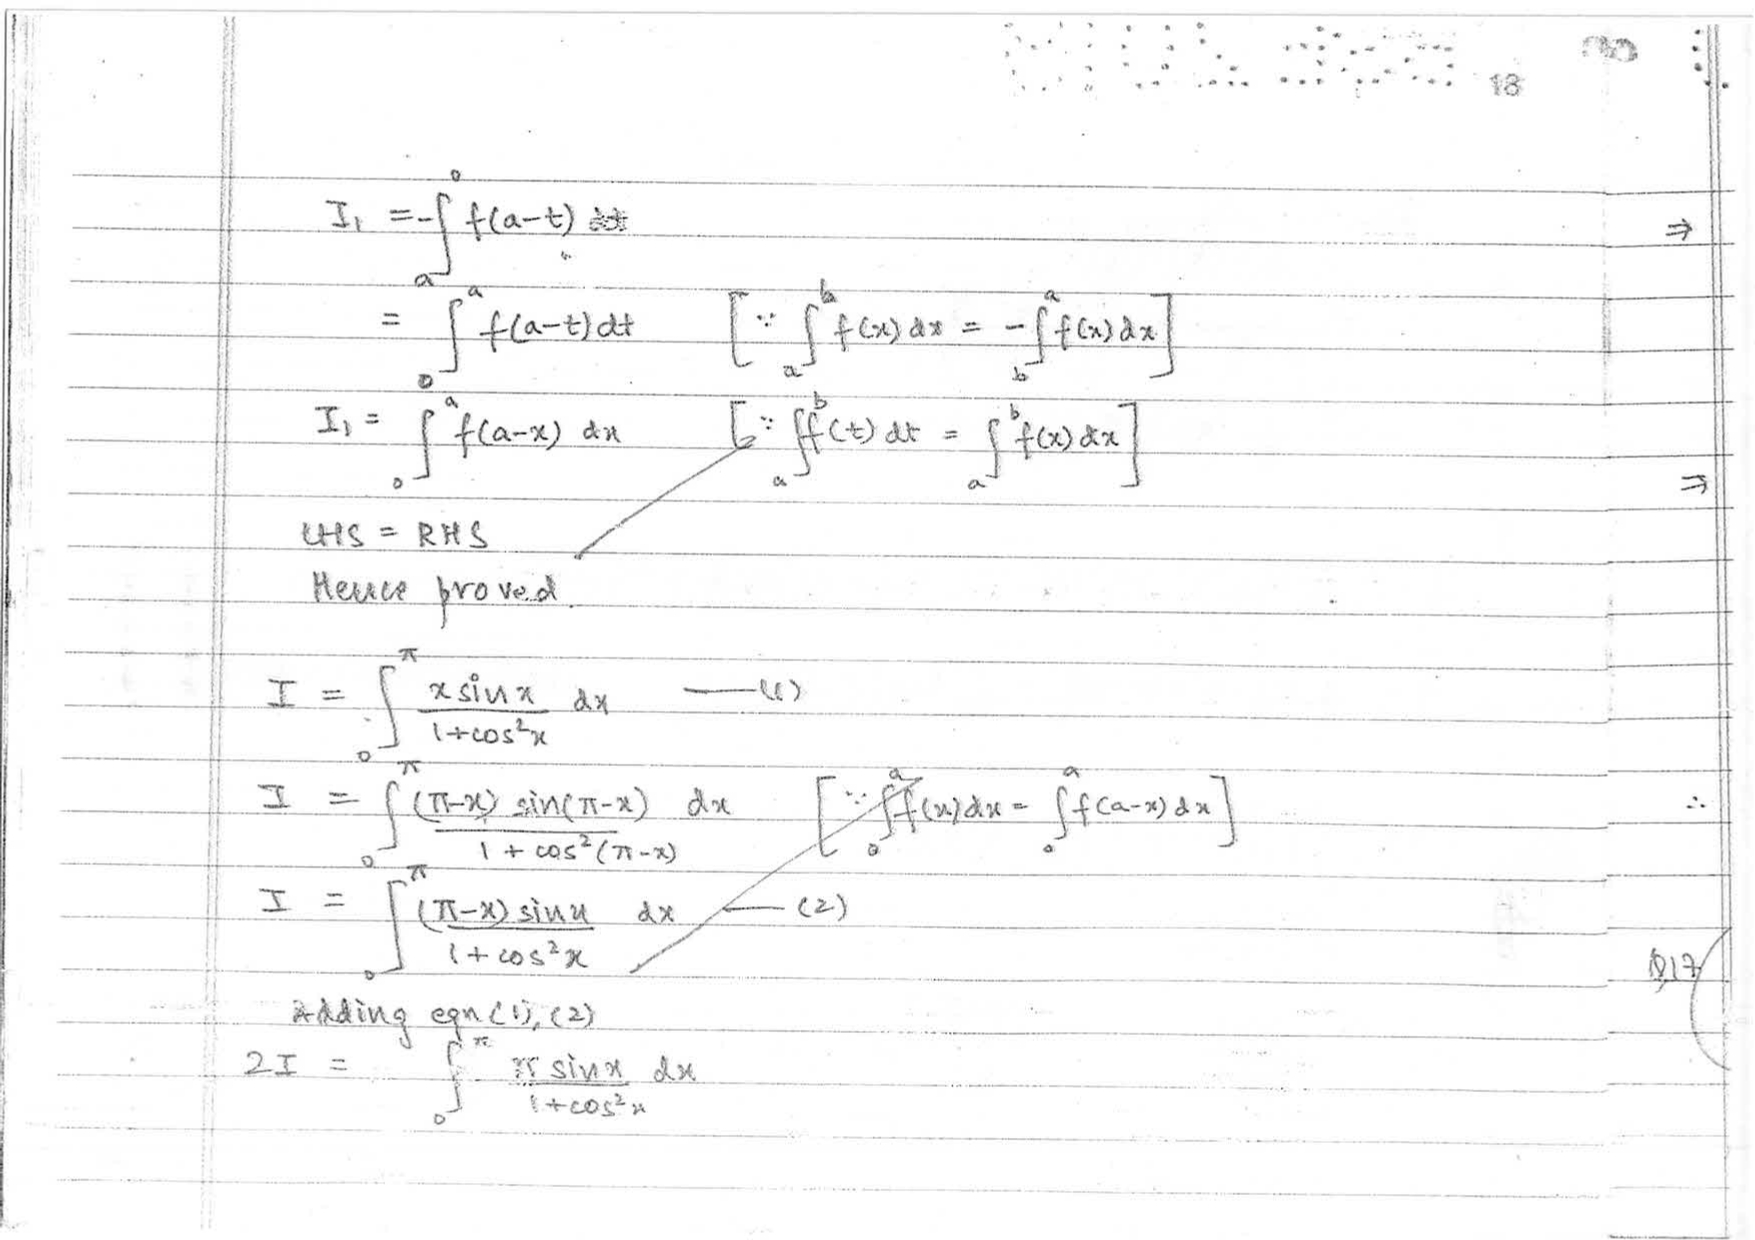 18
I₁ = -∫ₐ⁰ f(a-t) dt
⇒
= ∫₀ᵃ f(a-t) dt [∵ ∫ₐᵇ f(x) dx = -∫_bᵃ f(x) dx]
I₁ = ∫₀ᵃ f(a-x) dx [∵ ∫ₐᵇ f(t) dt = ∫ₐᵇ f(x) dx]
⇒
LHS = RHS
Hence proved.
I = ∫₀^π x sin x / 1+cos²x dx —(1)
I = ∫₀^π (π-x) sin(π-x) / 1 + cos²(π-x) dx [∵ ∫₀ᵃ f(x) dx = ∫₀ᵃ f(a-x) dx]
∴
I = ∫₀^π (π-x) sin x / 1 + cos²x dx — (2)
Q17
Adding eqn (1), (2)
2I = ∫₀^π π sin x / 1+cos²x dx